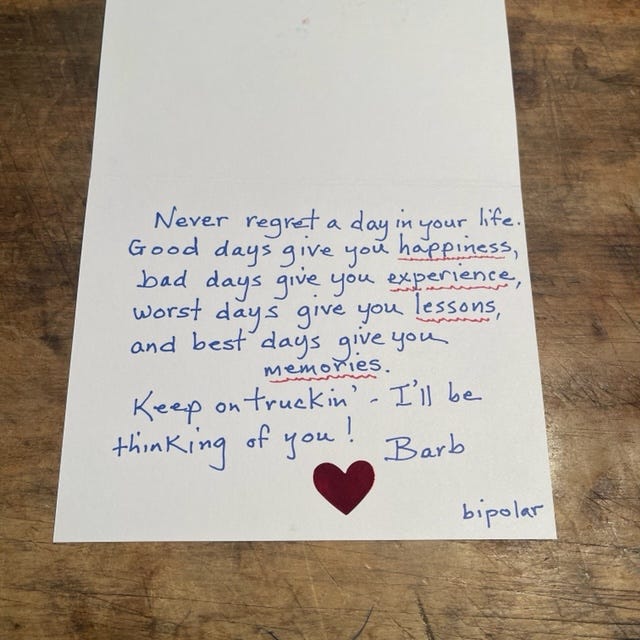 Never regret a day in your life.
Good days give you happiness,
bad days give you experience,
worst days give you lessons,
and best days give you
memories.
Keep on truckin' - I'll be
thinking of you! Barb
bipolar